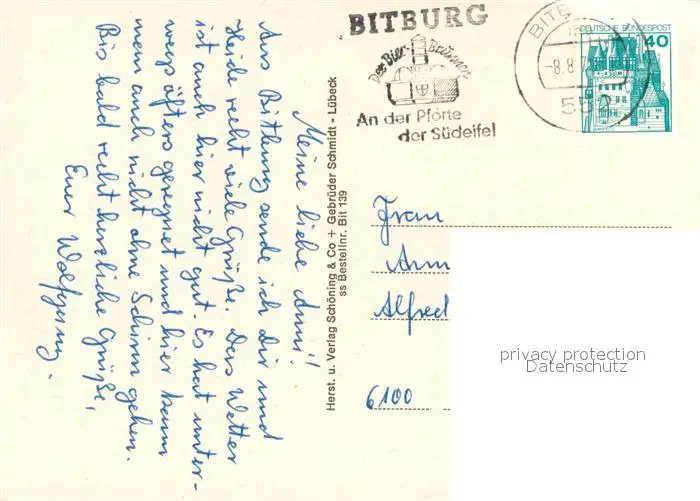 Meine liebe Anni!
Aus Bitburg sende ich Dir und
Heide recht viele Grüße. Das Wetter
ist auch hier nicht gut. Es hat unter-
wegs öfters geregnet und hier kann
man auch nicht ohne Schirm gehen.
Bis bald recht herzliche Grüße,
Euer Wolfgang.
Herst. u. Verlag Schöning & Co + Gebrüder Schmidt - Lübeck
ss Bestellnr. Bit 139
BITBURG
Der Bier-Brunnen
An der Pforte
der Südeifel
-8.8.7
552
DEUTSCHE BUNDESPOST
40
Frau
Ann
Alfred
6100
privacy protection
Datenschutz